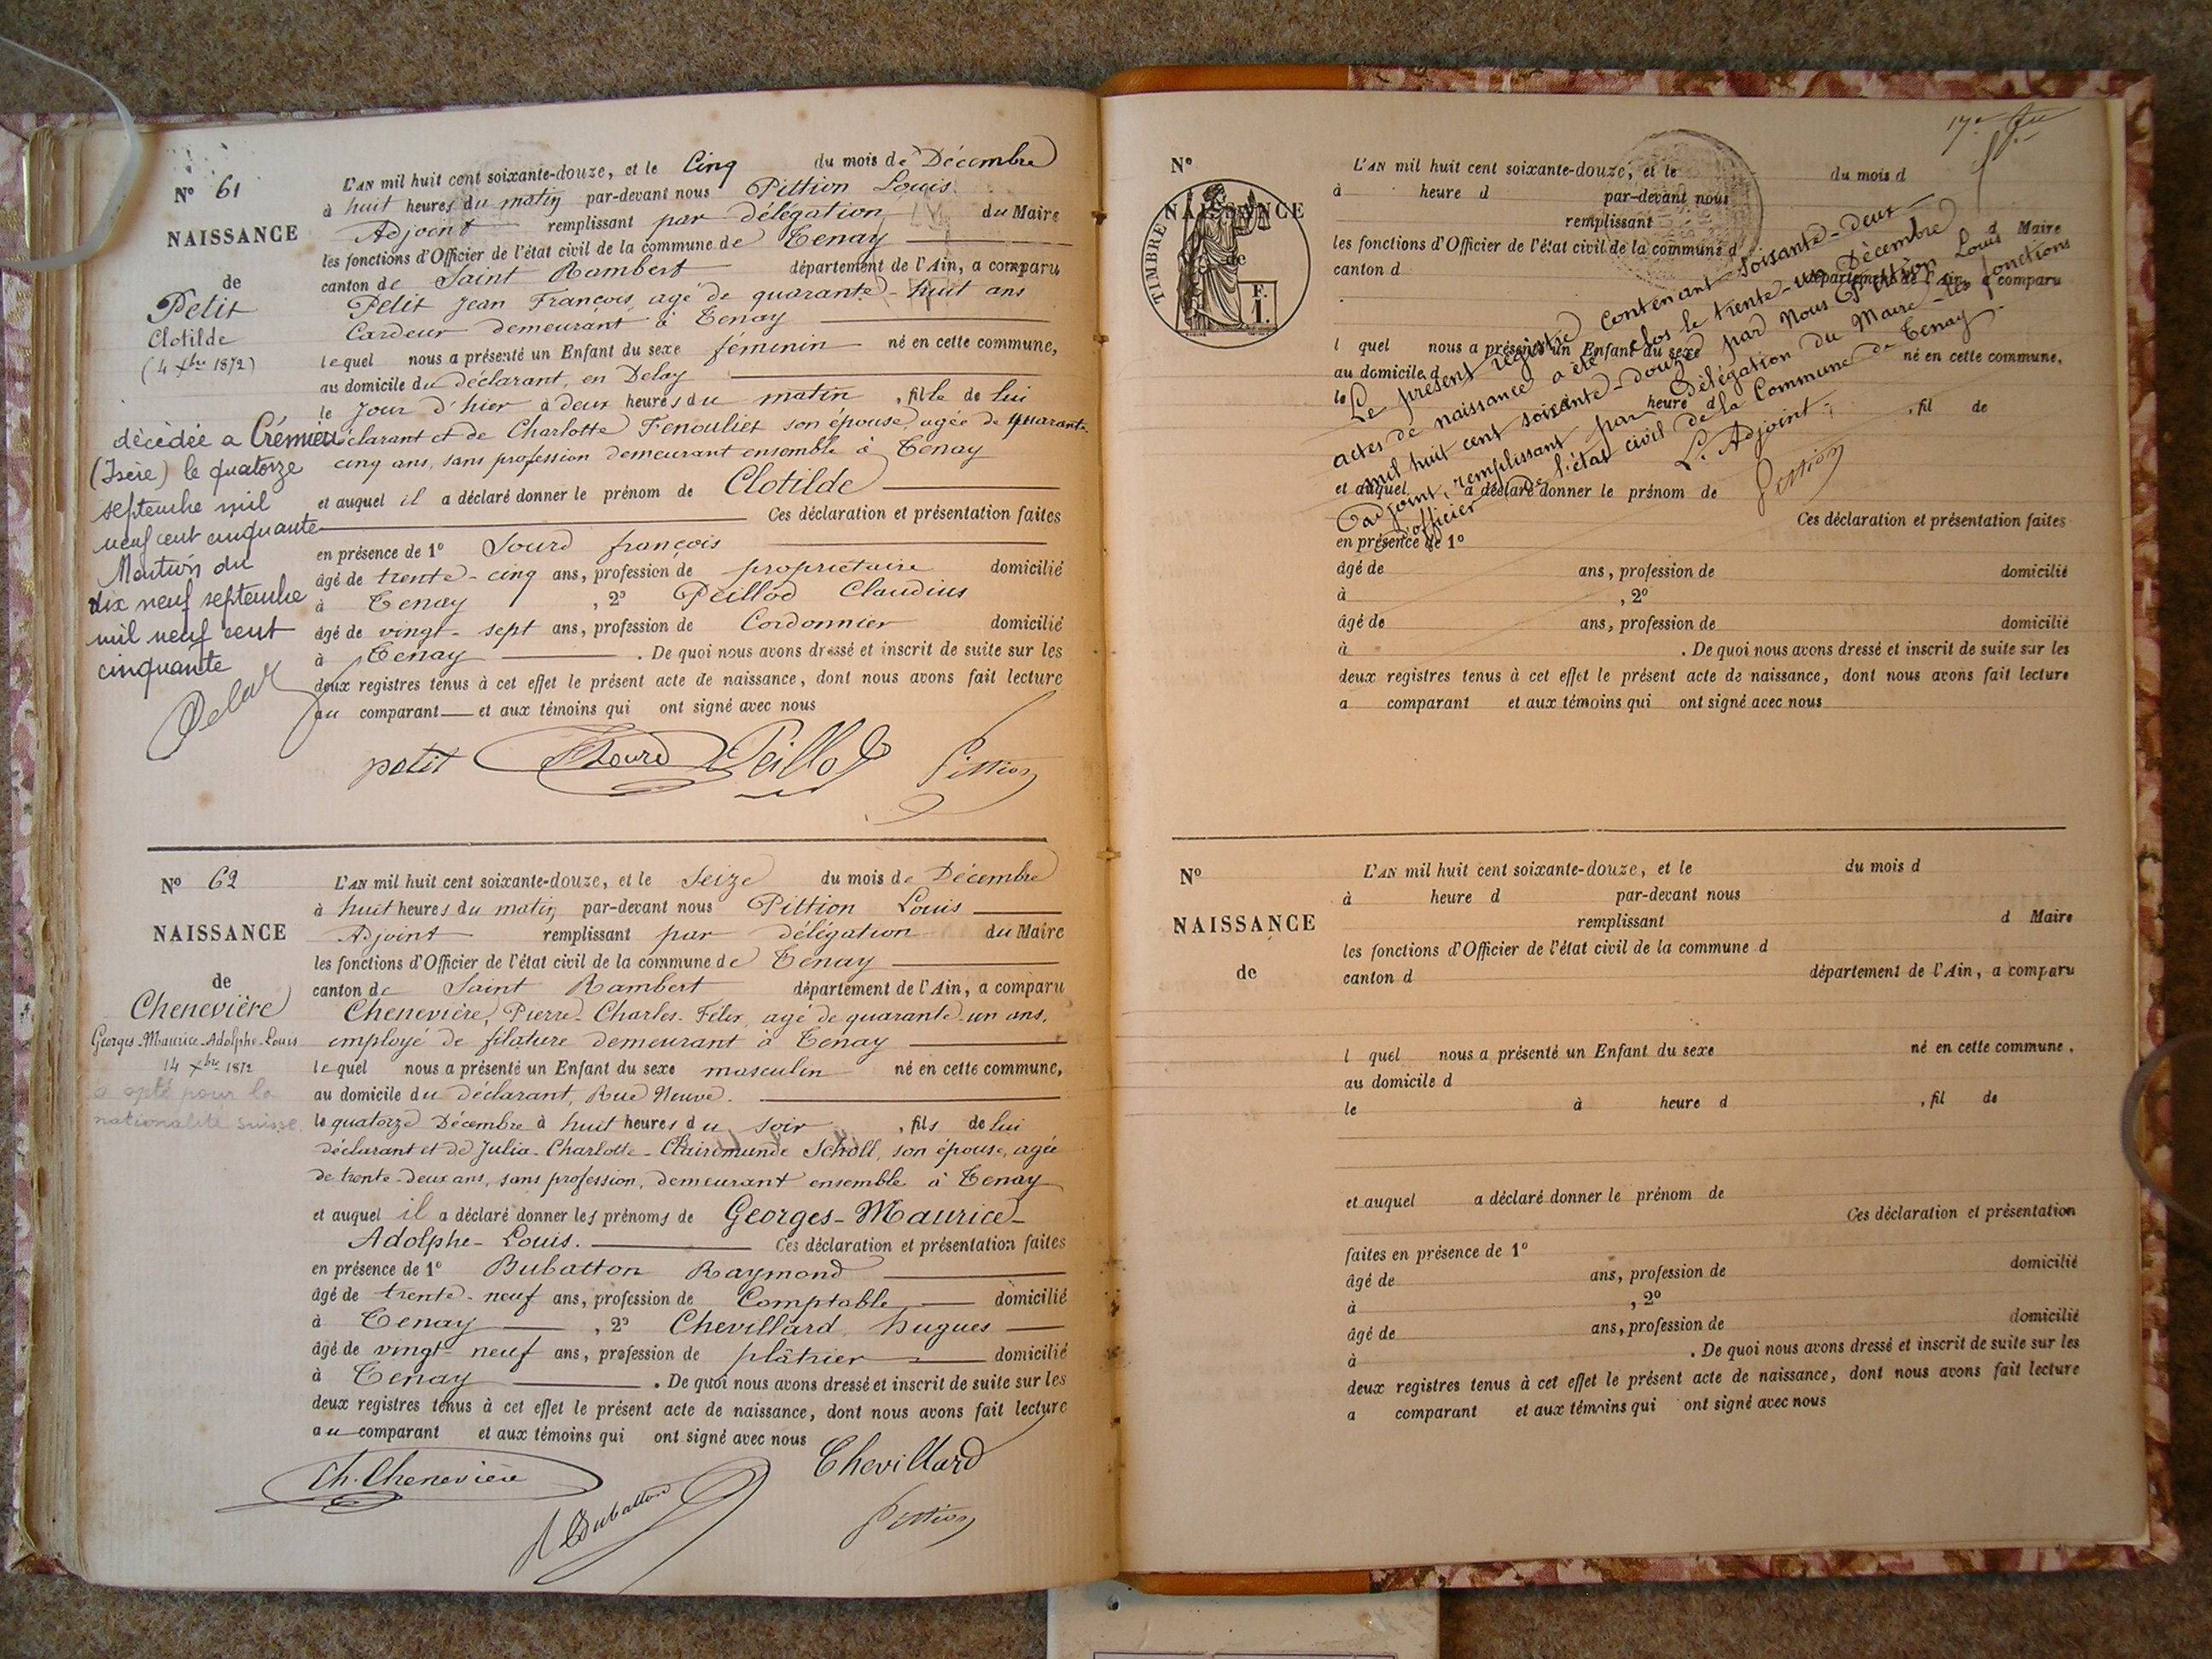 N° 61
NAISSANCE
de
Petit
Clotilde
(4 Xbre 1872)
décédée a Crémieu
(Isère) le quatorze
septembre mil
neuf cent cinquante
Mention du
dix neuf septembre
mil neuf cent
cinquante
L'AN mil huit cent soixante-douze, et le Cinq du mois de Décembre
à huit heures du matin par-devant nous Pittion Louis
Adjoint remplissant par délégation du Maire
les fonctions d'Officier de l'état civil de la commune de Tenay
canton de Saint Rambert département de l'Ain, a comparu
Petit Jean François, agé de quarante-huit ans
Cardeur demeurant à Tenay
lequel nous a présenté un Enfant du sexe féminin né en cette commune,
au domicile du déclarant, en Delay
le Jour d'hier à deux heures du matin, fille de lui
déclarant et de Charlotte Fenouliet son épouse, agée de quarante
cinq ans, sans profession demeurant ensemble à Tenay
et auquel il a déclaré donner le prénom de Clotilde
Ces déclaration et présentation faites
en présence de 1° Sourd françois
âgé de trente-cinq ans, profession de propriétaire domicilié
à Tenay, 2° Peillod Claudius
âgé de vingt-sept ans, profession de Cordonnier domicilié
à Tenay. De quoi nous avons dressé et inscrit de suite sur les
deux registres tenus à cet effet le présent acte de naissance, dont nous avons fait lecture
au comparant et aux témoins qui ont signé avec nous
petit Sourd Peillod Pittion
N° 62
NAISSANCE
de
Chenevière
Georges-Maurice-Adolphe-Louis
14 Xbre 1872
a opté pour la
nationalité suisse.
L'AN mil huit cent soixante-douze, et le Seize du mois de Décembre
à huit heures du matin, par-devant nous Pittion Louis
Adjoint remplissant par délégation du Maire
les fonctions d'Officier de l'état civil de la commune de Tenay
canton de Saint Rambert département de l'Ain, a comparu
Chenevière, Pierre-Charles-Félix, agé de quarante-un ans,
employé de filature demeurant à Tenay
lequel nous a présenté un Enfant du sexe masculin né en cette commune,
au domicile du déclarant, Rue Neuve.
le quatorze Décembre à huit heures du soir, fils de lui
déclarant et de Julia-Charlotte-Clairemunde Scholl, son épouse, agée
de trente-deux ans, sans profession, demeurant ensemble à Tenay
et auquel il a déclaré donner les prénoms de Georges-Maurice-
Adolphe-Louis. Ces déclaration et présentation faites
en présence de 1° Dubatton Raymond
âgé de trente-neuf ans, profession de Comptable domicilié
à Tenay, 2° Chevillard Hugues
âgé de vingt-neuf ans, profession de plâtrier domicilié
à Tenay. De quoi nous avons dressé et inscrit de suite sur les
deux registres tenus à cet effet le présent acte de naissance, dont nous avons fait lecture
au comparant et aux témoins qui ont signé avec nous
Ch. Chenevière Chevillard
Dubatton Pittion
17e
N°
NAISSANCE
de
TIMBRE
F.
1.
L'AN mil huit cent soixante-douze, et le du mois d
à heure d par-devant nous
remplissant d Maire
les fonctions d'Officier de l'état civil de la commune d
canton d département de l'Ain, a comparu
l quel nous a présenté un Enfant du sexe né en cette commune,
au domicile d
le heure d, fil de
et auquel a déclaré donner le prénom de
Ces déclaration et présentation faites
en présence de 1°
âgé de ans, profession de domicilié
à , 2°
âgé de ans, profession de domicilié
à . De quoi nous avons dressé et inscrit de suite sur les
deux registres tenus à cet effet le présent acte de naissance, dont nous avons fait lecture
a comparant et aux témoins qui ont signé avec nous
Le présent registre contenant soixante-deux
actes de naissance a été clos le trente-un Décembre
mil huit cent soixante-douze par Nous Pittion Louis
adjoint, remplissant par délégation du Maire les fonctions
d'officier de l'état civil de la Commune de Tenay.
L'Adjoint
Pittion
N°
NAISSANCE
de
L'AN mil huit cent soixante-douze, et le du mois d
à heure d par-devant nous
remplissant d Maire
les fonctions d'Officier de l'état civil de la commune d
canton d département de l'Ain, a comparu
l quel nous a présenté un Enfant du sexe né en cette commune,
au domicile d
le à heure d, fil de
et auquel a déclaré donner le prénom de
Ces déclaration et présentation
faites en présence de 1°
âgé de ans, profession de domicilié
à , 2°
âgé de ans, profession de domicilié
à . De quoi nous avons dressé et inscrit de suite sur les
deux registres tenus à cet effet le présent acte de naissance, dont nous avons fait lecture
a comparant et aux témoins qui ont signé avec nous